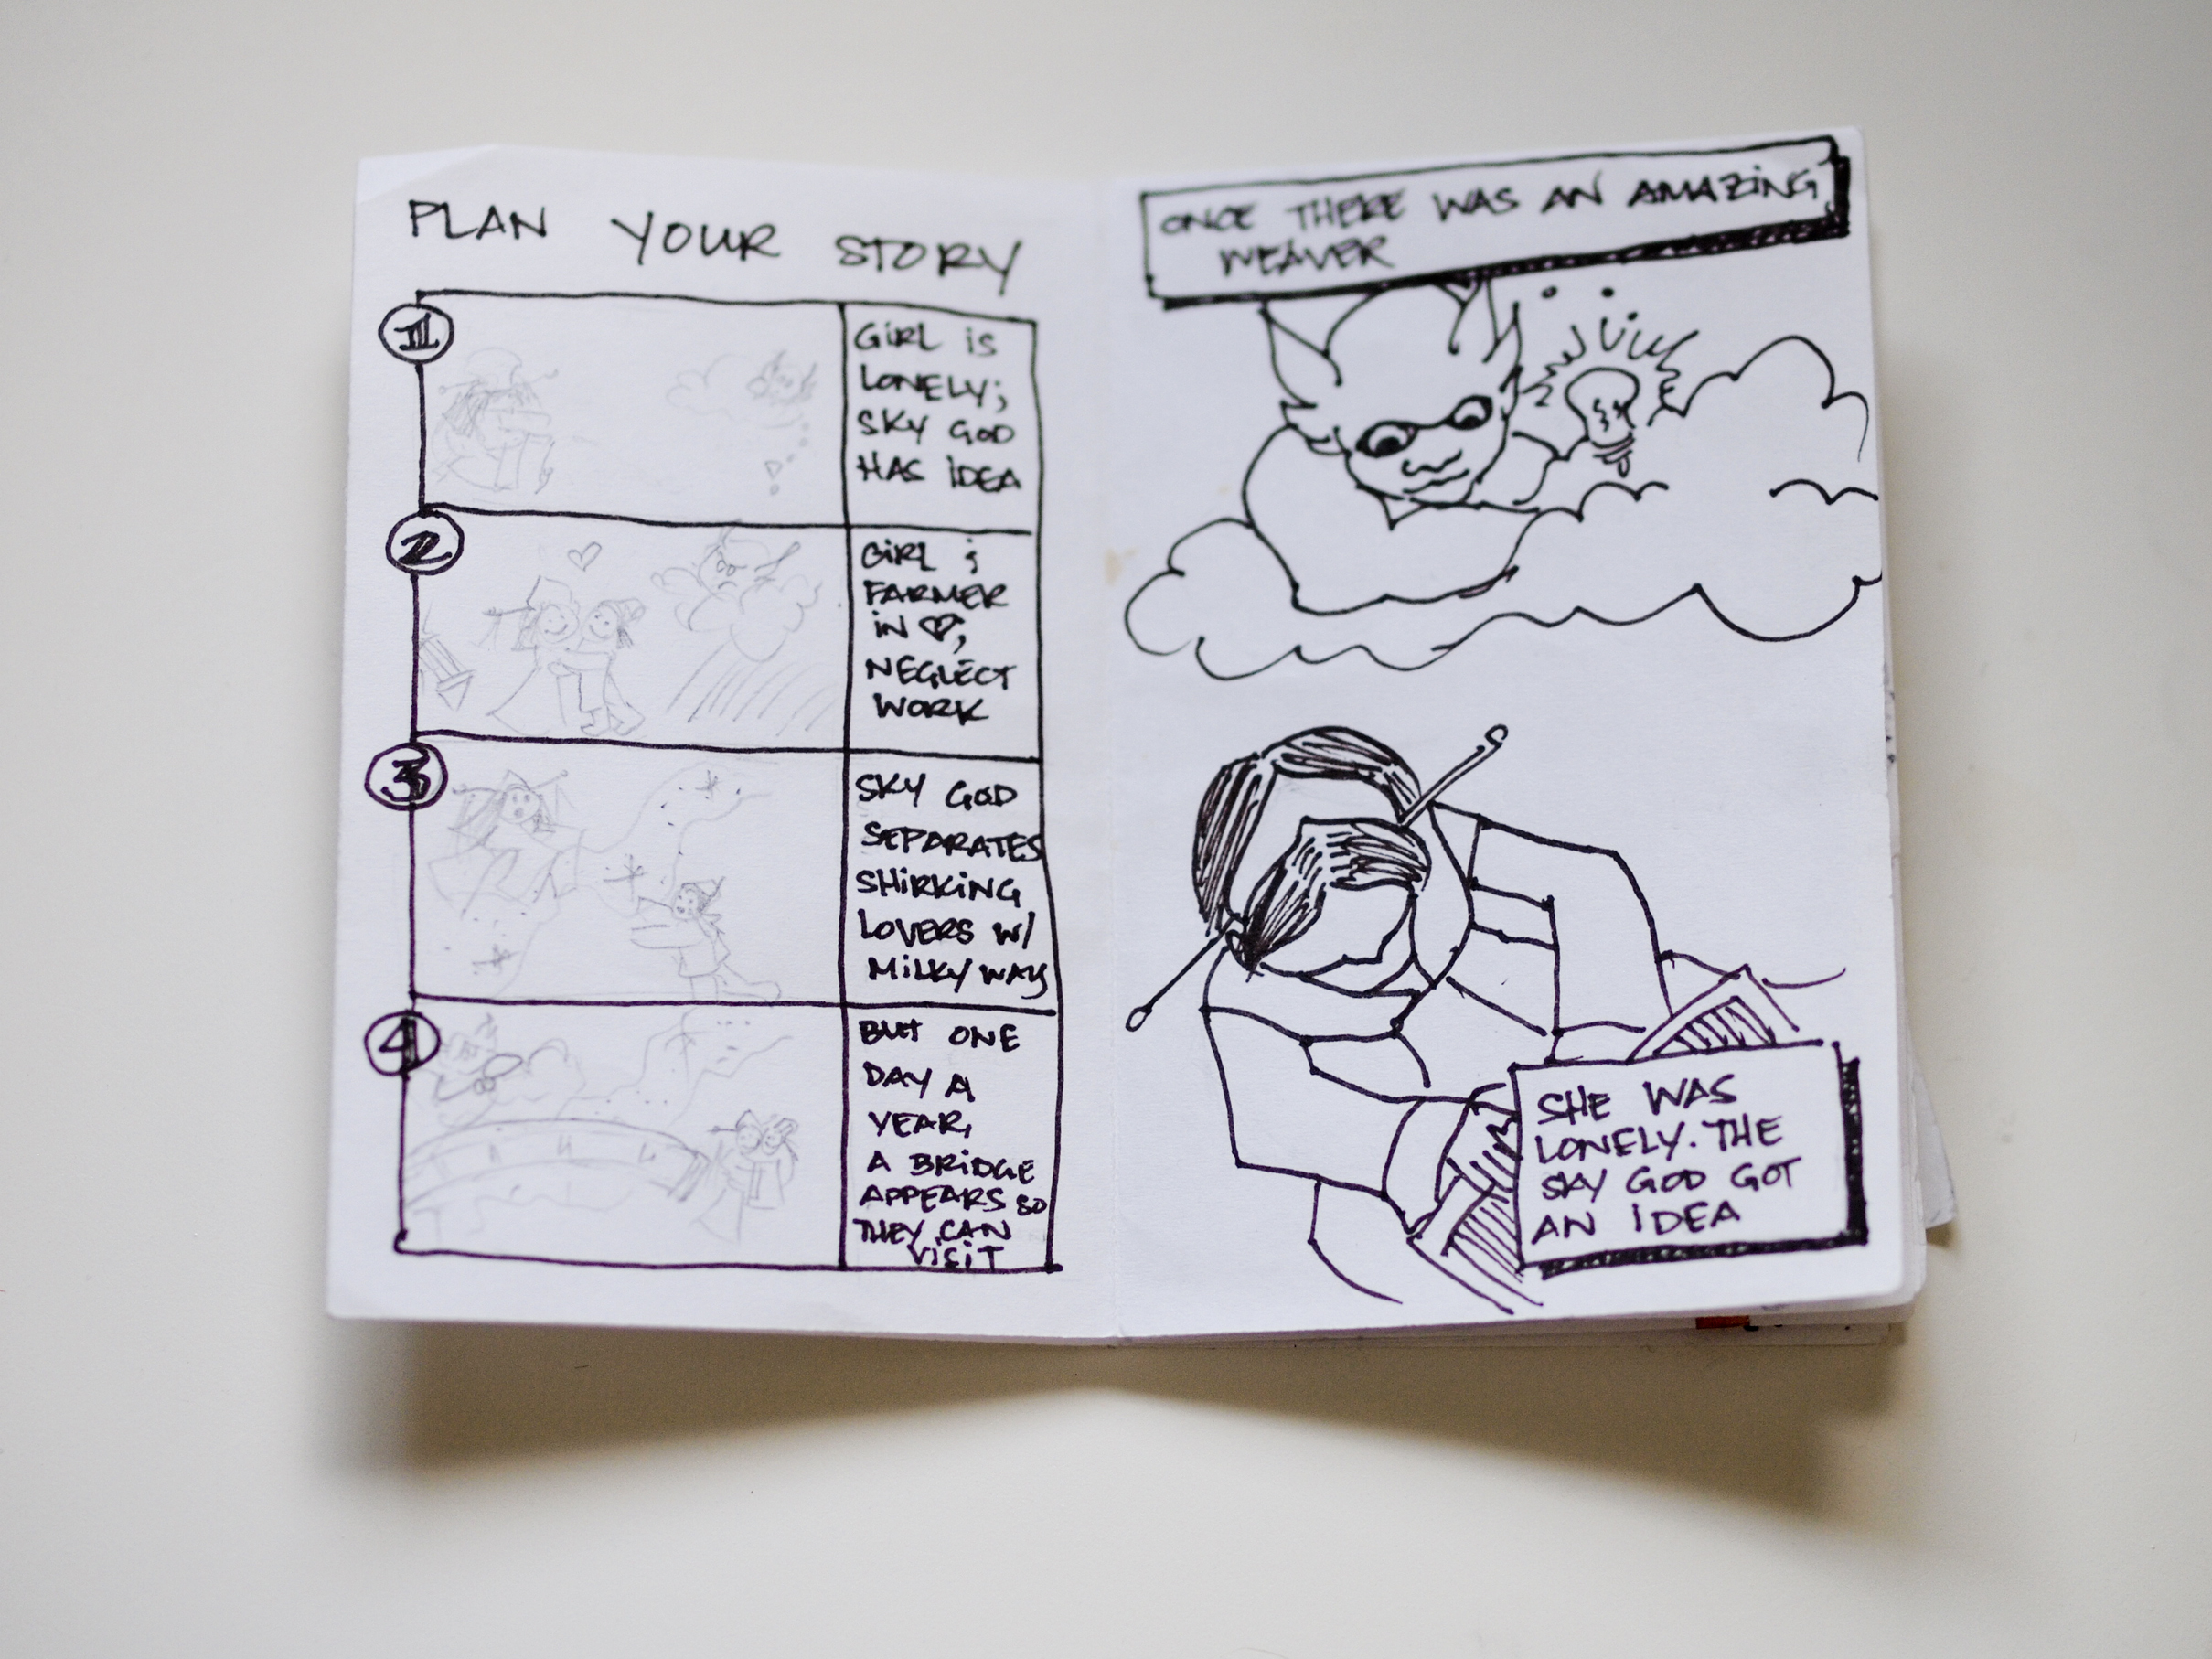 PLAN YOUR STORY
1
GIRL IS
LONELY;
SKY GOD
HAS IDEA
2
GIRL &
FARMER
IN ♡;
NEGLECT
WORK
3
SKY GOD
SEPARATES
SHIRKING
LOVERS W/
MILKY WAY
4
BUT ONE
DAY A
YEAR,
A BRIDGE
APPEARS SO
THEY CAN
VISIT
ONCE THERE WAS AN AMAZING
WEAVER
SHE WAS
LONELY. THE
SKY GOD GOT
AN IDEA